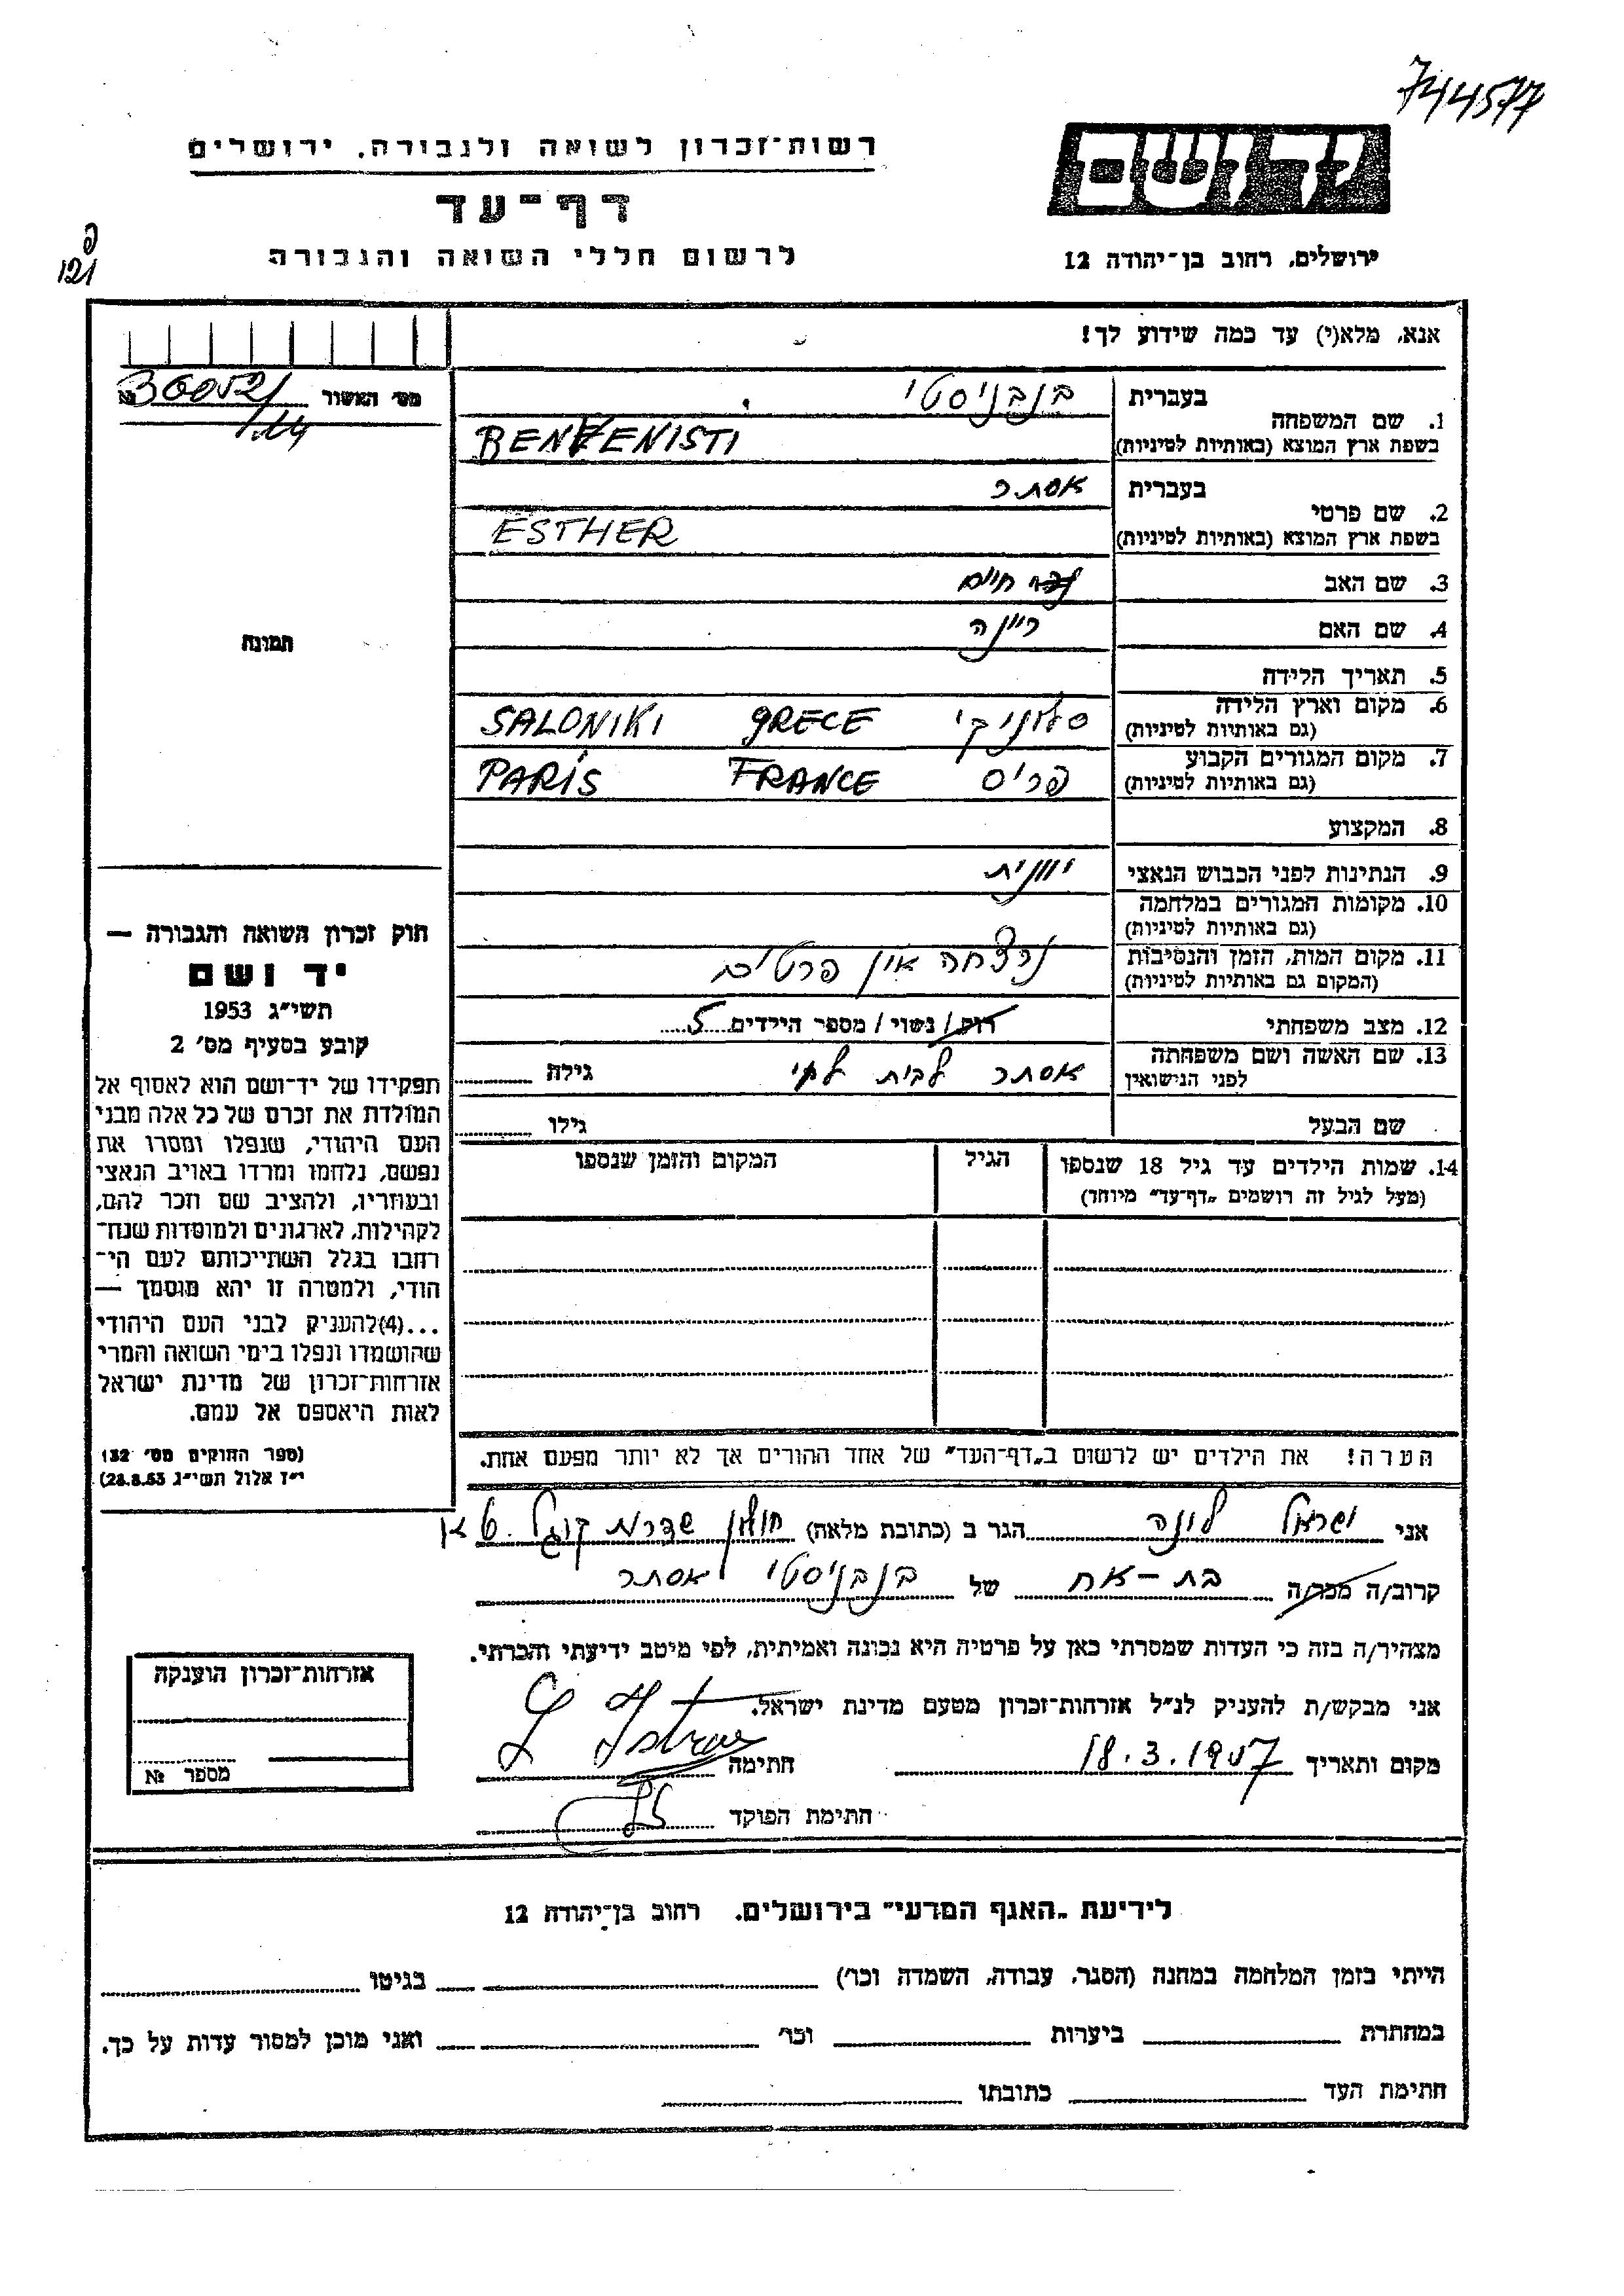 744577
רשות־זכרון לשואה ולגבורה, ירושלים
דף־עד
לרשום חללי השואה והגבורה
יד ושם
ירושלים, רחוב בן־יהודה 12
פ
121
אנא, מלא(י) עד כמה שידוע לך!
מס׳ האשור 36052 №
/14
1. שם המשפחה
בעברית בנבניסטי
בשפת ארץ המוצא (באותיות לטיניות) BENVENISTI
2. שם פרטי
בעברית אסתר
בשפת ארץ המוצא (באותיות לטיניות) ESTHER
3. שם האב חיים
4. שם האם ריינה
5. תאריך הלידה
6. מקום וארץ הלידה (גם באותיות לטיניות) סלוניקי GRECE SALONIKI
7. מקום המגורים הקבוע (גם באותיות לטיניות) פריס FRANCE PARIS
8. המקצוע
9. הנתינות לפני הכבוש הנאצי יוונית
10. מקומות המגורים במלחמה (גם באותיות לטיניות)
11. מקום המות, הזמן והנסיבות (המקום גם באותיות לטיניות) נרצחה אין פרטים
12. מצב משפחתי רוק/ נשוי/ מספר הילדים 5
13. שם האשה ושם משפחתה לפני הנישואין אסתר לבית לוי גילה
שם הבעל גילו
14. שמות הילדים עד גיל 18 שנספו (מעל לגיל זה רושמים „דף־עד״ מיוחד) הגיל המקום והזמן שנספו
הערה! את הילדים יש לרשום ב„דף־העד״ של אחד ההורים אך לא יותר מפעם אחת.
תמונה
חוק זכרון השואה והגבורה —
יד ושם
תשי״ג 1953
קובע בסעיף מס׳ 2
תפקידו של יד־ושם הוא לאסוף אל
המולדת את זכרם של כל אלה מבני
העם היהודי, שנפלו ומסרו את
נפשם, נלחמו ומרדו באויב הנאצי
ובעוזריו, ולהציב שם וזכר להם,
לקהילות, לארגונים ולמוסדות שנח־
רחבו בגלל השתייכותם לעם הי־
הודי, ולמטרה זו יהא מוסמך —
...(4)להעניק לבני העם היהודי
שהושמדו ונפלו בימי השואה והמרי
אזרחות־זכרון של מדינת ישראל
לאות היאספם אל עמם.
(ספר החוקים מס׳ 132
י״ז אלול תשי״ג 28.8.53)
אני ישראל לונה הגר ב (כתובת מלאה) חולון שדרות קוגל 6 א
קרוב/ה מכר/ה בת-אח של בנבניסטי אסתר
מצהיר/ה בזה כי העדות שמסרתי כאן על פרטיה היא נכונה ואמיתית, לפי מיטב ידיעתי והכרתי.
אני מבקש/ת להעניק לנ״ל אזרחות־זכרון מטעם מדינת ישראל.
מקום ותאריך 18.3.1957 חתימה L Istrael
חתימת הפוקד
אזרחות־זכרון הוענקה
מספר №
לידיעת „האגף המדעי״ בירושלים. רחוב בן־יהודה 12
הייתי בזמן המלחמה במחנה (הסגר, עבודה, השמדה וכו׳) בגיטו
במחתרת ביערות וכו׳ ואני מוכן למסור עדות על כך.
חתימת העד כתובתו